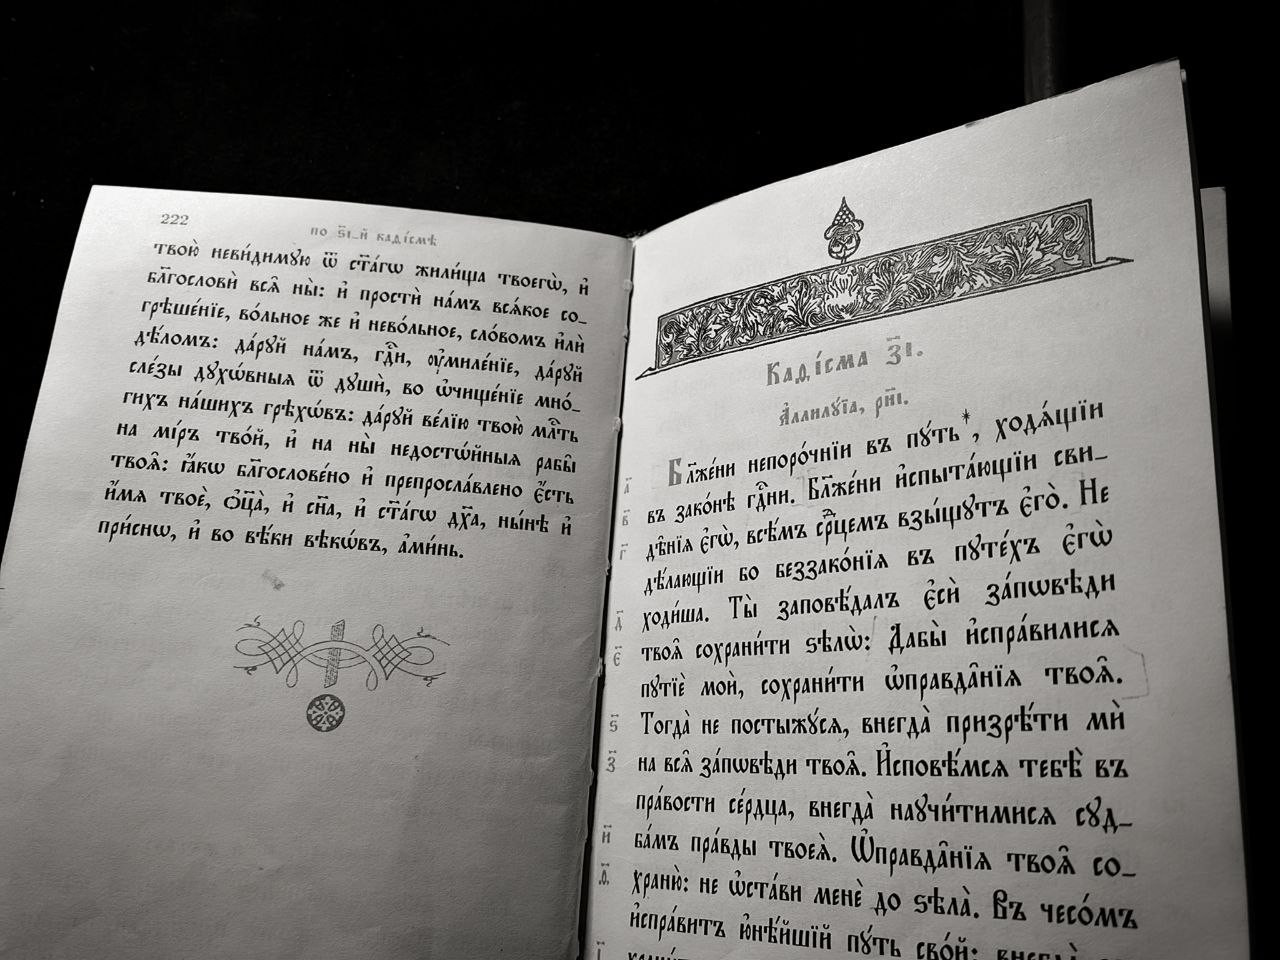 222
по ѕ҃і_й каѳі́смѣ
твою̀ неви́димꙋю ѿ ст҃а́гѡ жили́ща твоегѡ̀, и҆
бл҃гословѝ всѧ̑ ны̀: и҆ простѝ на́мъ всѧ́кое со_
грѣше́нїе, во́льное же и҆ нево́льное, сло́вомъ и҆лѝ
дѣ́ломъ: да́рꙋй на́мъ, гдⷭ҇и, ᲂу҆миле́нїе, да́рꙋй
сле́зы дꙋхѡ́вныѧ ѿ дꙋшѝ, во ѡ҆чище́нїе мно́_
гихъ на́шихъ грѣхѡ́въ: да́рꙋй ве́лїю твою̀ млⷭ҇ть
на мі́ръ тво́й, и҆ на ны̀ недостѡ́йныѧ рабы̑
твоѧ̑: ꙗ҆́кѡ бл҃гослове́но и҆ препросла́влено є҆́сть
и҆́мѧ твоѐ, ѻ҆ц҃а̀, и҆ сн҃а, и҆ ст҃а́гѡ дх҃а, ны́нѣ и҆
при́снѡ, и҆ во вѣ́ки вѣкѡ́въ, а҆ми́нь.
Каѳі́сма з҃і.
А҆ллилꙋ́їа, рн҃і.
а҃ Бл҃же́ни непоро́чнїи въ пꙋ́ть*, ходѧ́щїи
в҃ въ зако́нѣ гдⷭ҇ни. Бл҃же́ни и҆спыта́ющїи сви_
г҃ дѣ̑нїѧ є҆гѡ̀, всѣ́мъ срⷣцемъ взы́щꙋтъ є҆го̀. Не
дѣ́лающїи бо беззако́нїѧ въ пꙋте́хъ є҆гѡ̀
д҃ ходи́ша. Ты̀ заповѣ́далъ є҆сѝ за́пѡвѣди
є҃ твоѧ̑ сохрани́ти ѕѣлѡ̀: Дабы̀ и҆спра́вилисѧ
пꙋтїѐ моѝ, сохрани́ти ѡ҆правда̑нїѧ твоѧ̑.
ѕ҃ Тогда̀ не постыжꙋ́сѧ, внегда̀ призрѣ́ти мѝ
з҃ на всѧ̑ за́пѡвѣди твоѧ̑. И҆сповѣ́мсѧ тебѣ̀ въ
пра́вости се́рдца, внегда̀ наꙋчи́тимисѧ сꙋд_
и҃ ба́мъ пра́вды твоеѧ̀. Ѡ҆правда̑нїѧ твоѧ̑ со_
ѳ҃. храню̀: не ѡ҆ста́ви менѐ до ѕѣла̀. Въ чесо́мъ
и҆спра́витъ ю҆нѣ́йшїй пꙋ́ть сво́й: внегда̀